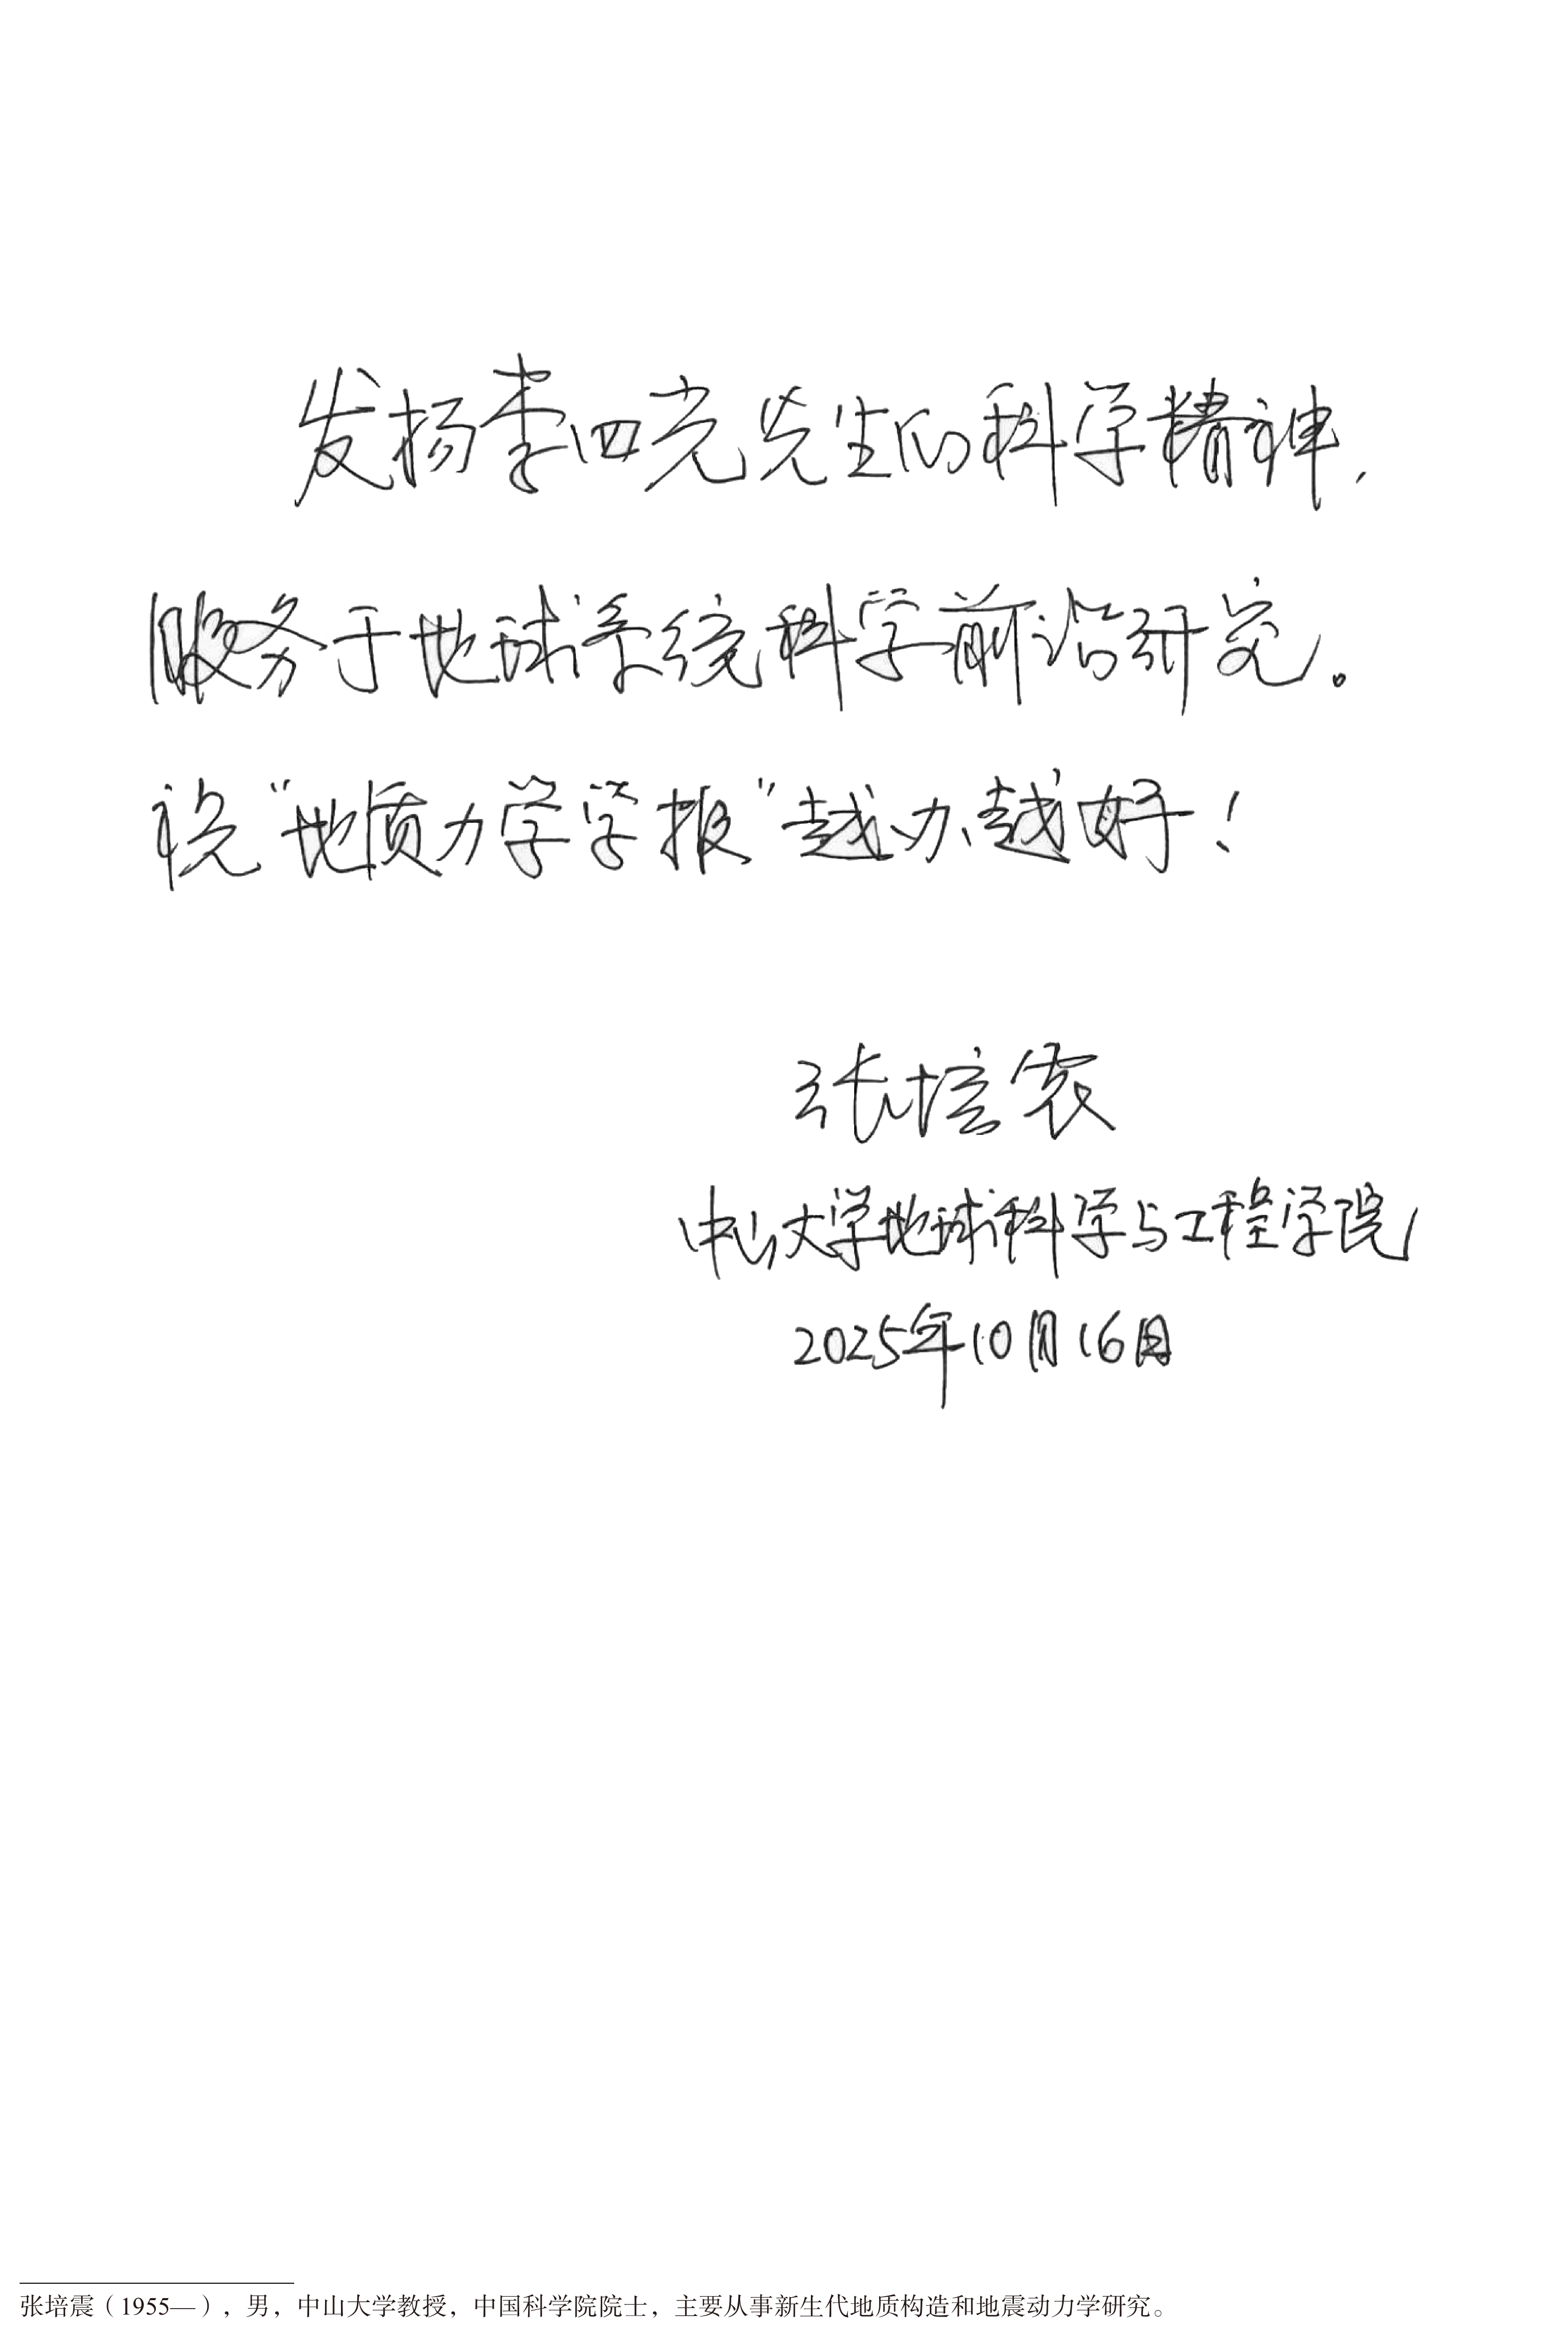 发扬李四光先生的科学精神，
服务于地球系统科学前沿研究。
祝“地质力学学报”越办越好！
张培震
中山大学地球科学与工程学院
2025年10月16日
张培震（1955—），男，中山大学教授，中国科学院院士，主要从事新生代地质构造和地震动力学研究。